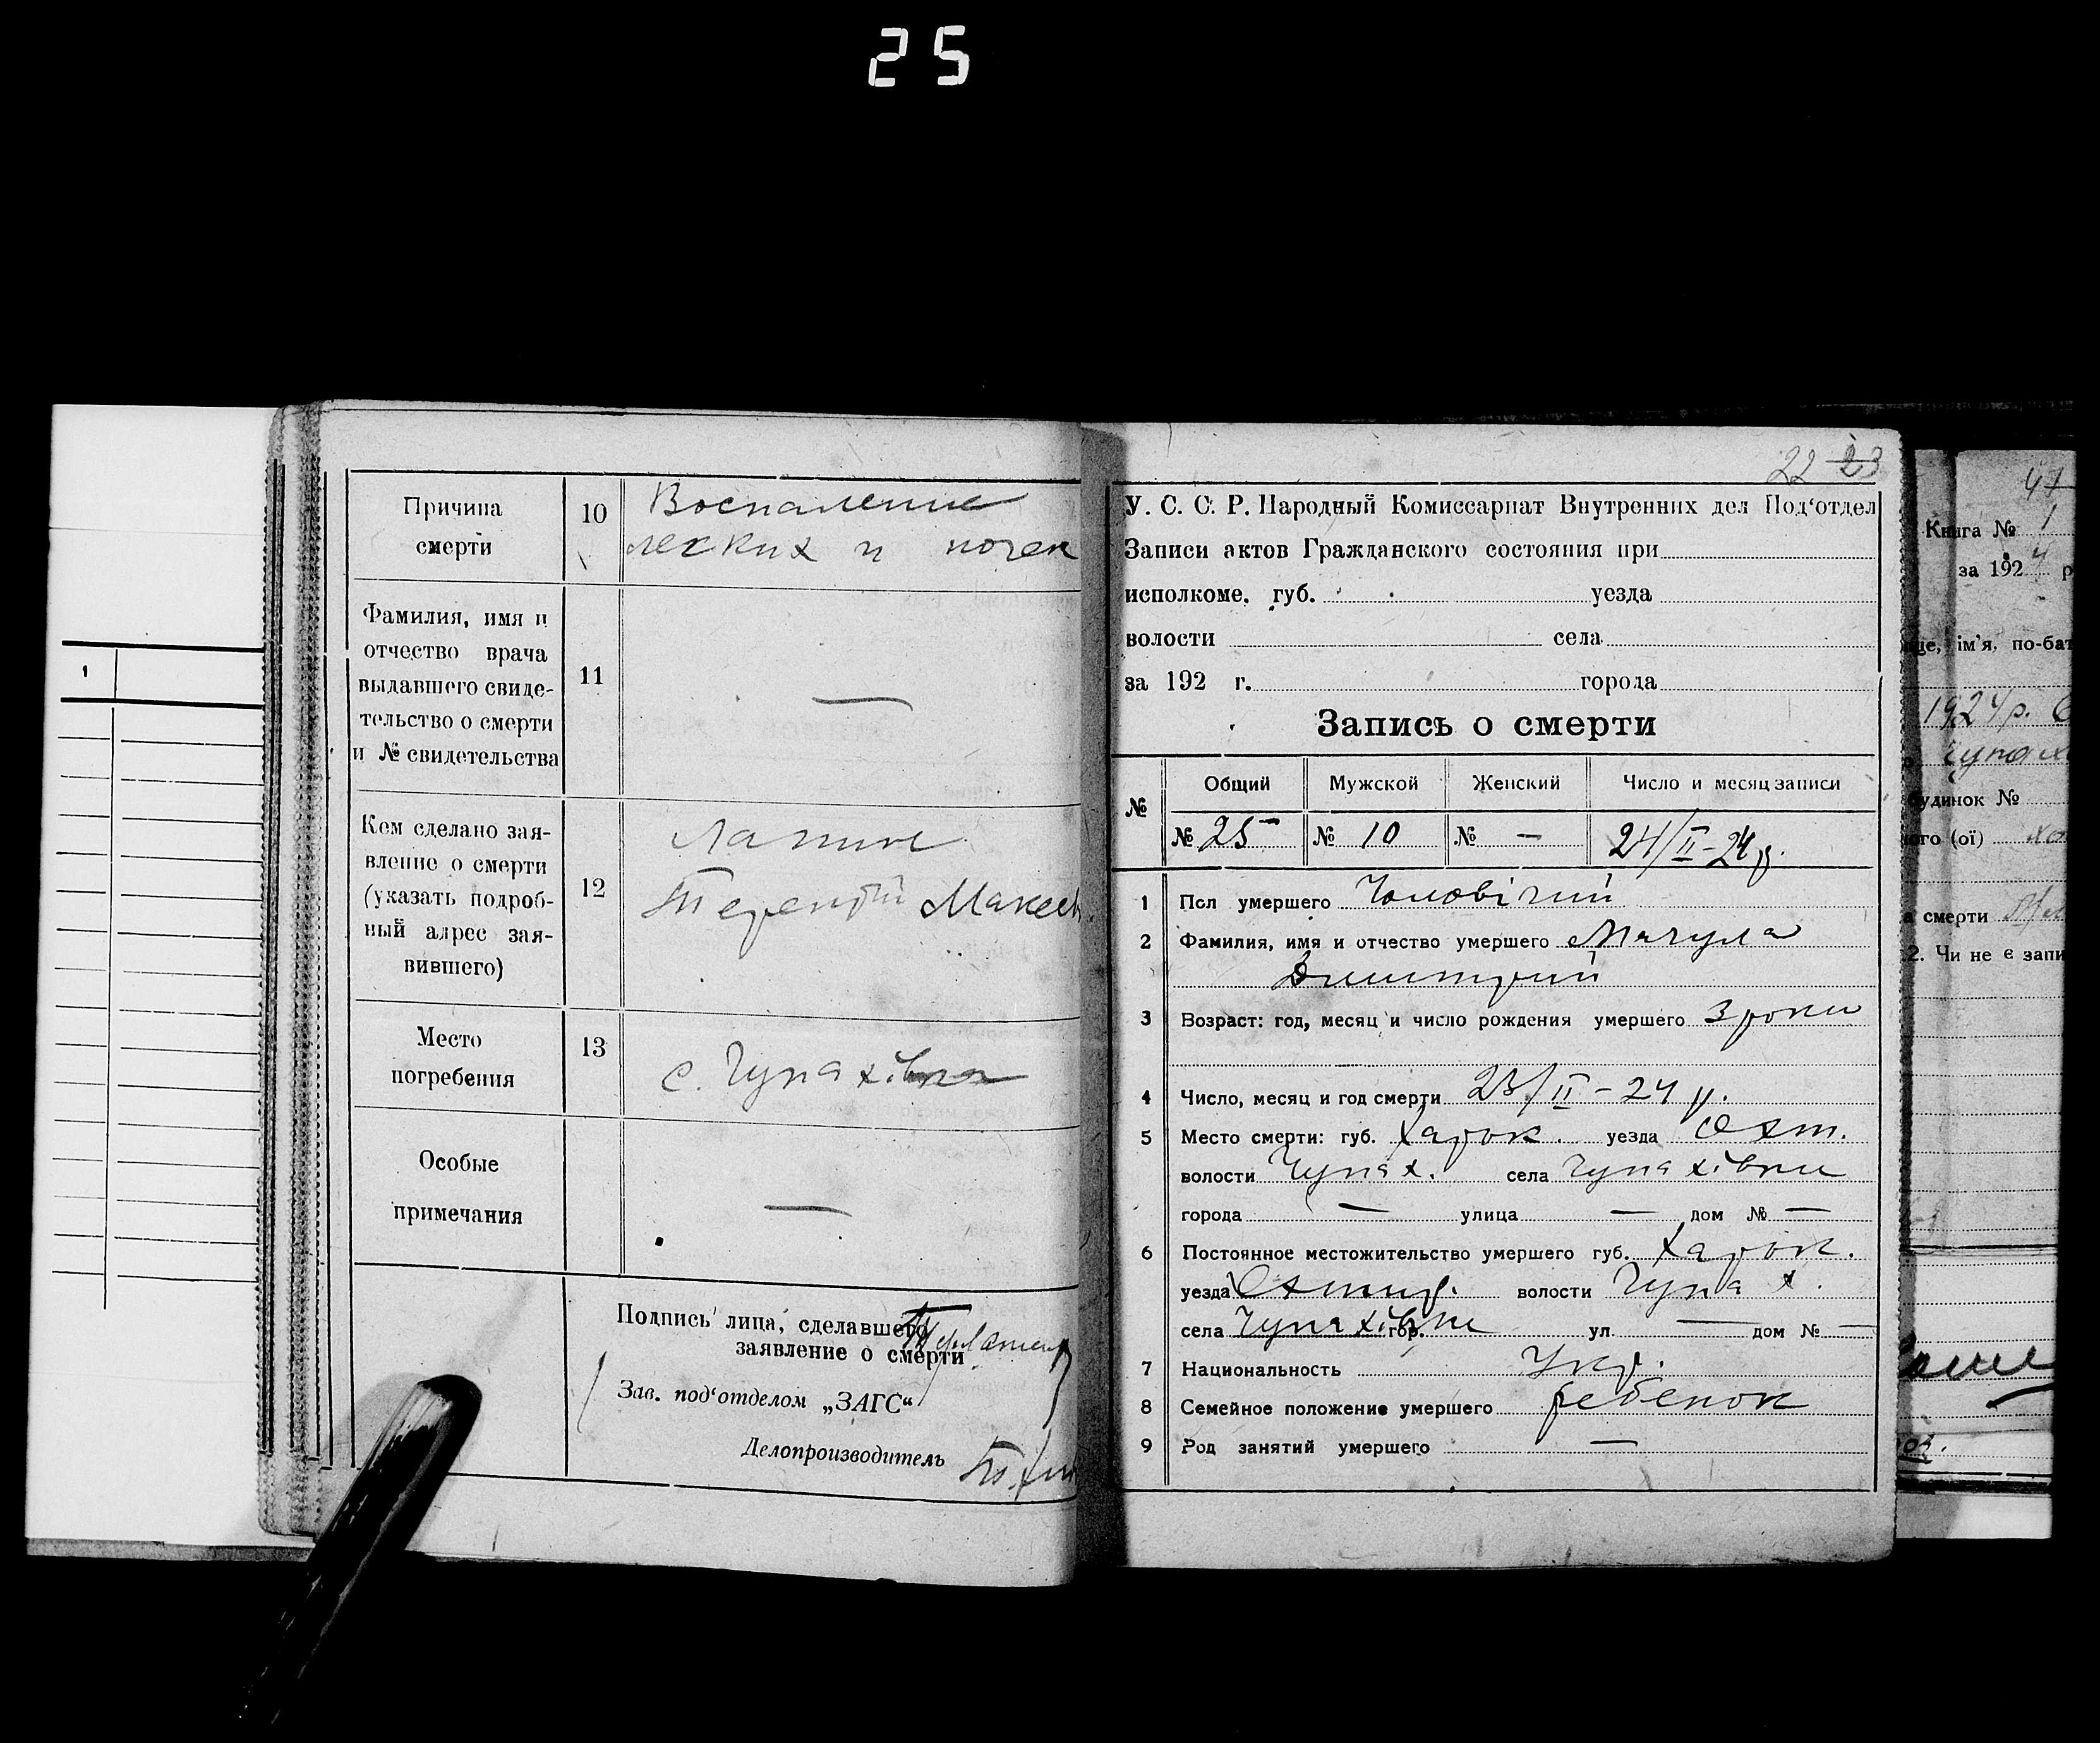 25
1
Причина
смерти
10
Воспаление
легких и почек
Фамилия, имя и
отчество врача
выдавшего свиде-
тельство о смерти
и № свидетельства
11
—
Кем сделано зая-
вление о смерти
(указать подроб-
ный адрес зая-
вившего)
12
Терентій
Место
погребения
13
с. Чупахівка
Особые
примечания
—
Подпись лица, сделавшего
заявление о смерти
Зав. под‘отделом „ЗАГС“
Делопроизводитель
22 23
У. С. С. Р. Народный Комиссариат Внутренних дел Под‘отдел
Записи актов Гражданского состояния при
исполкоме. губ. уезда
волости села
за 192 г. города
Запись о смерти
№ Общий Мужской Женский Число и месяц записи
№ 25 № 10 № — 24/II-24 р.
1 Пол умершего Чоловічий
2 Фамилия, имя и отчество умершего Мачула
Дмитрий
3 Возраст: год, месяц и число рождения умершего 3 роки
4 Число, месяц и год смерти 23/II-24 р.
5 Место смерти: губ. Харьк. уезда Охт.
волости Чупах. села Чупахівки
города — улица — дом № —
6 Постоянное местожительство умершего губ. Харьк.
уезда Охтир. волости Чупах.
села Чупахівки гор. ул. — дом № —
7 Национальность Укр.
8 Семейное положение умершего ребенок
9 Род занятий умершего —
47
Книга № 1
за 1924 р
ім'я, по-бат
1924 р.
Чупах
будинок №
ого (ої)
а смерти
2. Чи не є запи